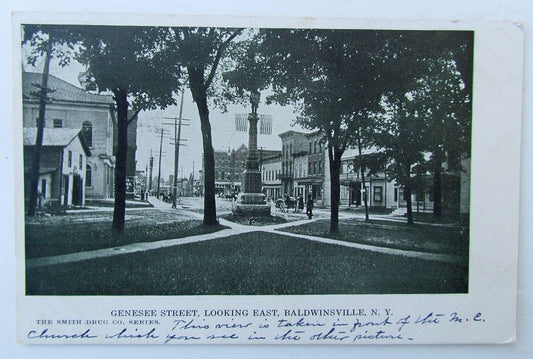 GENESEE STREET, LOOKING EAST, BALDWINSVILLE, N. Y.
THE SMITH DRUG CO. SERIES. This view is taken in front of the M. E.
Church which you see in the other picture.